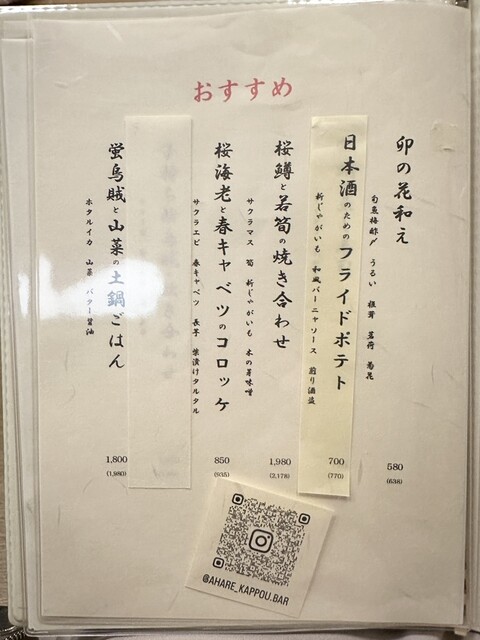 おすすめ
卯の花和え
旬魚梅酢〆 うるい 椎茸 茗荷 菊花
580
(638)
日本酒のためのフライドポテト
新じゃがいも 和風バーニャソース 煎り酒塩
700
(770)
桜鱒と若筍の焼き合わせ
サクラマス 筍 新じゃがいも 木の芽味噌
1,980
(2,178)
桜海老と春キャベツのコロッケ
サクラエビ 春キャベツ 長芋 葉漬けタルタル
850
(935)
蛍烏賊と山菜の土鍋ごはん
ホタルイカ 山菜 バター醤油
1,800
(1,980)
@AHARE_KAPPOU.BAR